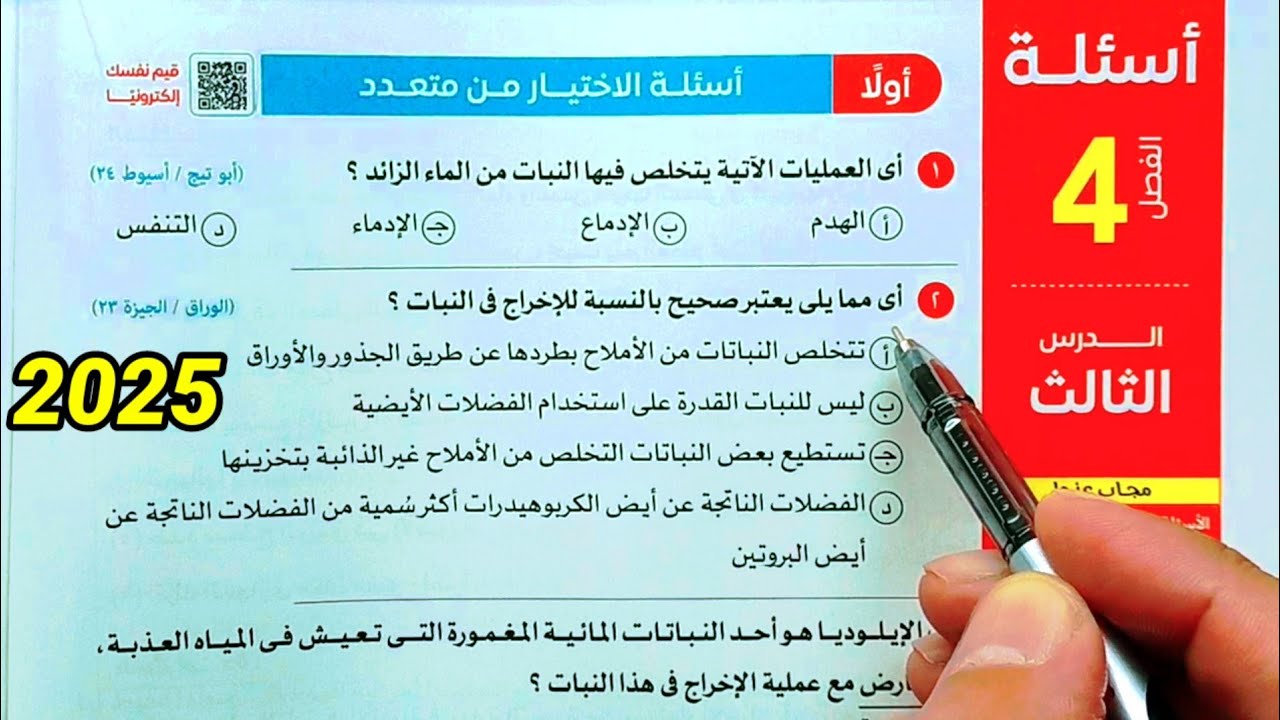 أسئلة
الفصل
4
الــدرس
الثالث
مجاب عنها
أولًا
أسئلـة الاختيـار مـن متعـدد
قيم نفسك
إلكترونيًا
١ أى العمليات الآتية يتخلص فيها النبات من الماء الزائد ؟ (أبو تيج / أسيوط ٢٤)
أ الهدم ب الإدماع جـ الإدماء د التنفس
٢ أى مما يلى يعتبر صحيح بالنسبة للإخراج فى النبات ؟ (الوراق / الجيزة ٢٣)
أ تتخلص النباتات من الأملاح بطردها عن طريق الجذور والأوراق
ب ليس للنبات القدرة على استخدام الفضلات الأيضية
جـ تستطيع بعض النباتات التخلص من الأملاح غير الذائبة بتخزينها
د الفضلات الناتجة عن أيض الكربوهيدرات أكثر سُمية من الفضلات الناتجة عن
أيض البروتين
2025
الإيلـوديـا هـو أحـد النبـاتـات المائيـة المغمـورة التـى تـعيـش فـى الميـاه العـذبـة ،
مع عملية الإخراج فى هذا النبات ؟